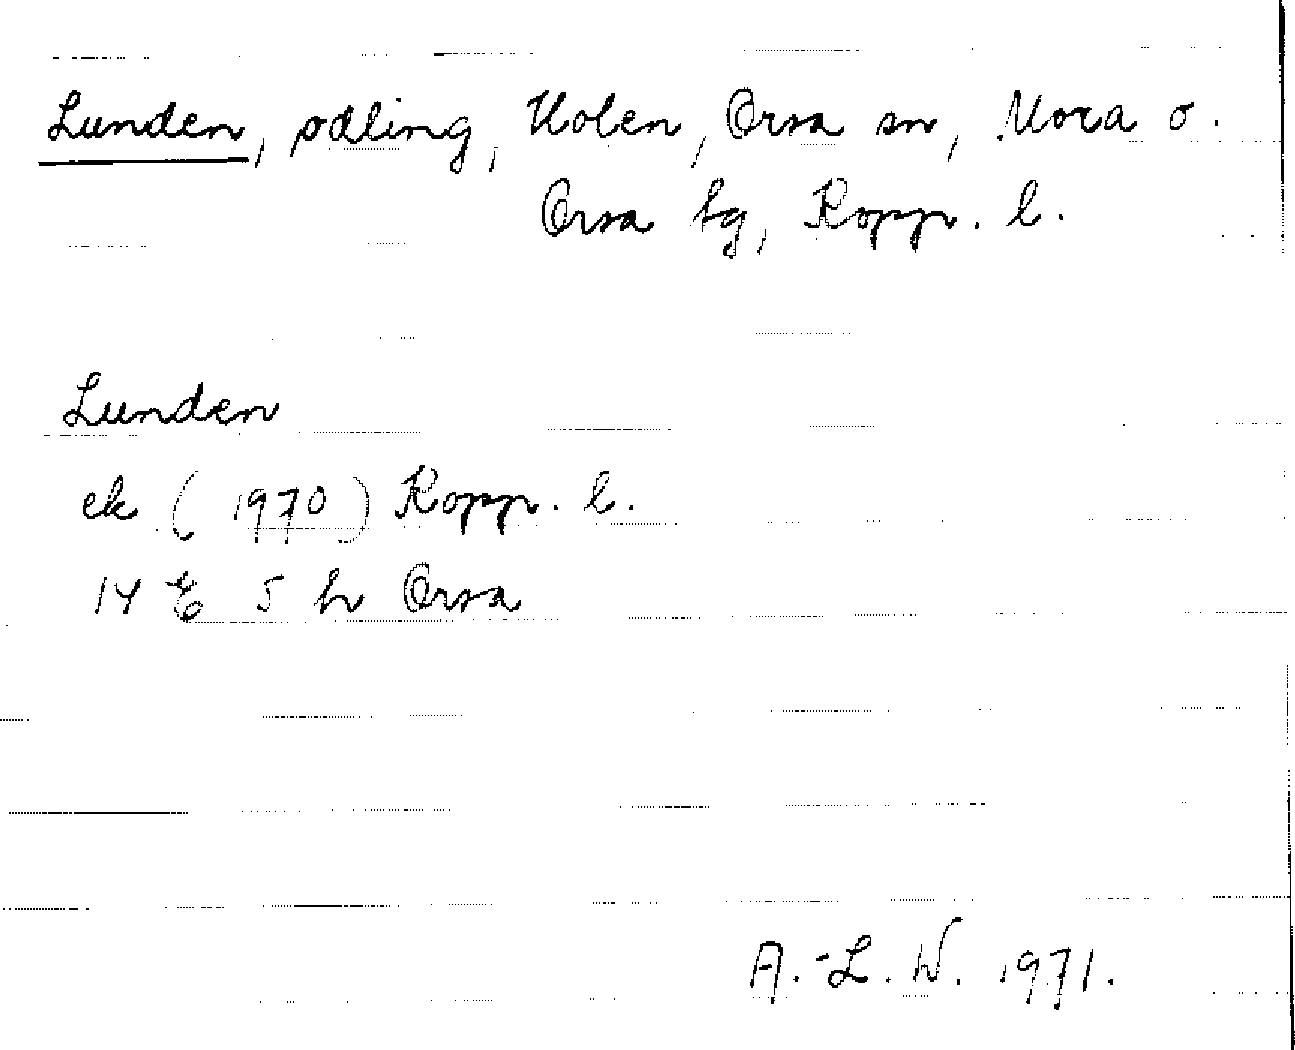 Lunden, odling, Holen, Orsa sn, Mora o.
Orsa tg, Kopp. l.
Lunden
ek (1970) Kopp. l.
14 E 5 h Orsa
A.-L. W. 1971.